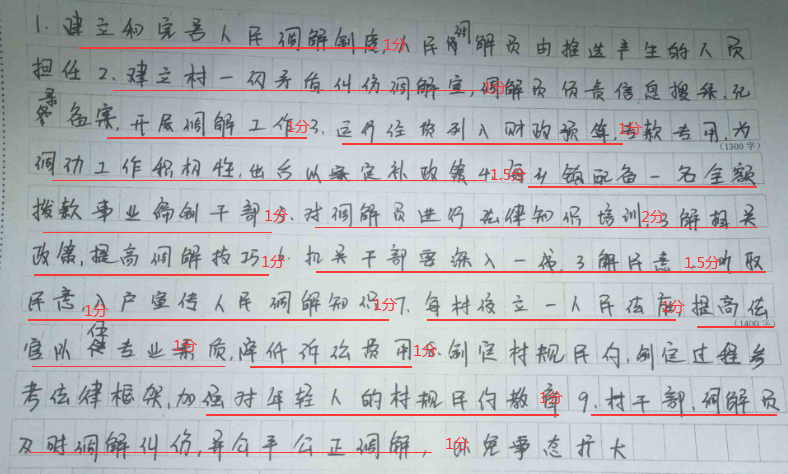 1.建立和完善人民调解制度,人民调解员由推选产生的人员
担任2.建立村一级矛盾纠纷调解室,调解员负责信息搜集、记
录备案,开展调解工作3.运行经费列入财政预算,专款专用,为
(1300字)
调动工作积极性,出台以案定补政策4.每乡镇配备一名全额
拨款事业编制干部5.对调解员进行法律知识培训,了解相关
政策,提高调解技巧6.机关干部要深入一线,了解民意,听取
民意,入户宣传人民调解知识7.每村设立一人民法庭,提高法
(1400字)
官队伍专业素质,降低诉讼费用8.制定村规民约,制定过程参
考法律框架,加强对年轻人的村规民约教育9.村干部、调解员
及时调解纠纷,并公平公正调解,以免事态扩大
1分
1分
1分
1分
1.5分
1分
2分
1分
1.5分
1分
1分
1分
1分
1分
1分
1分